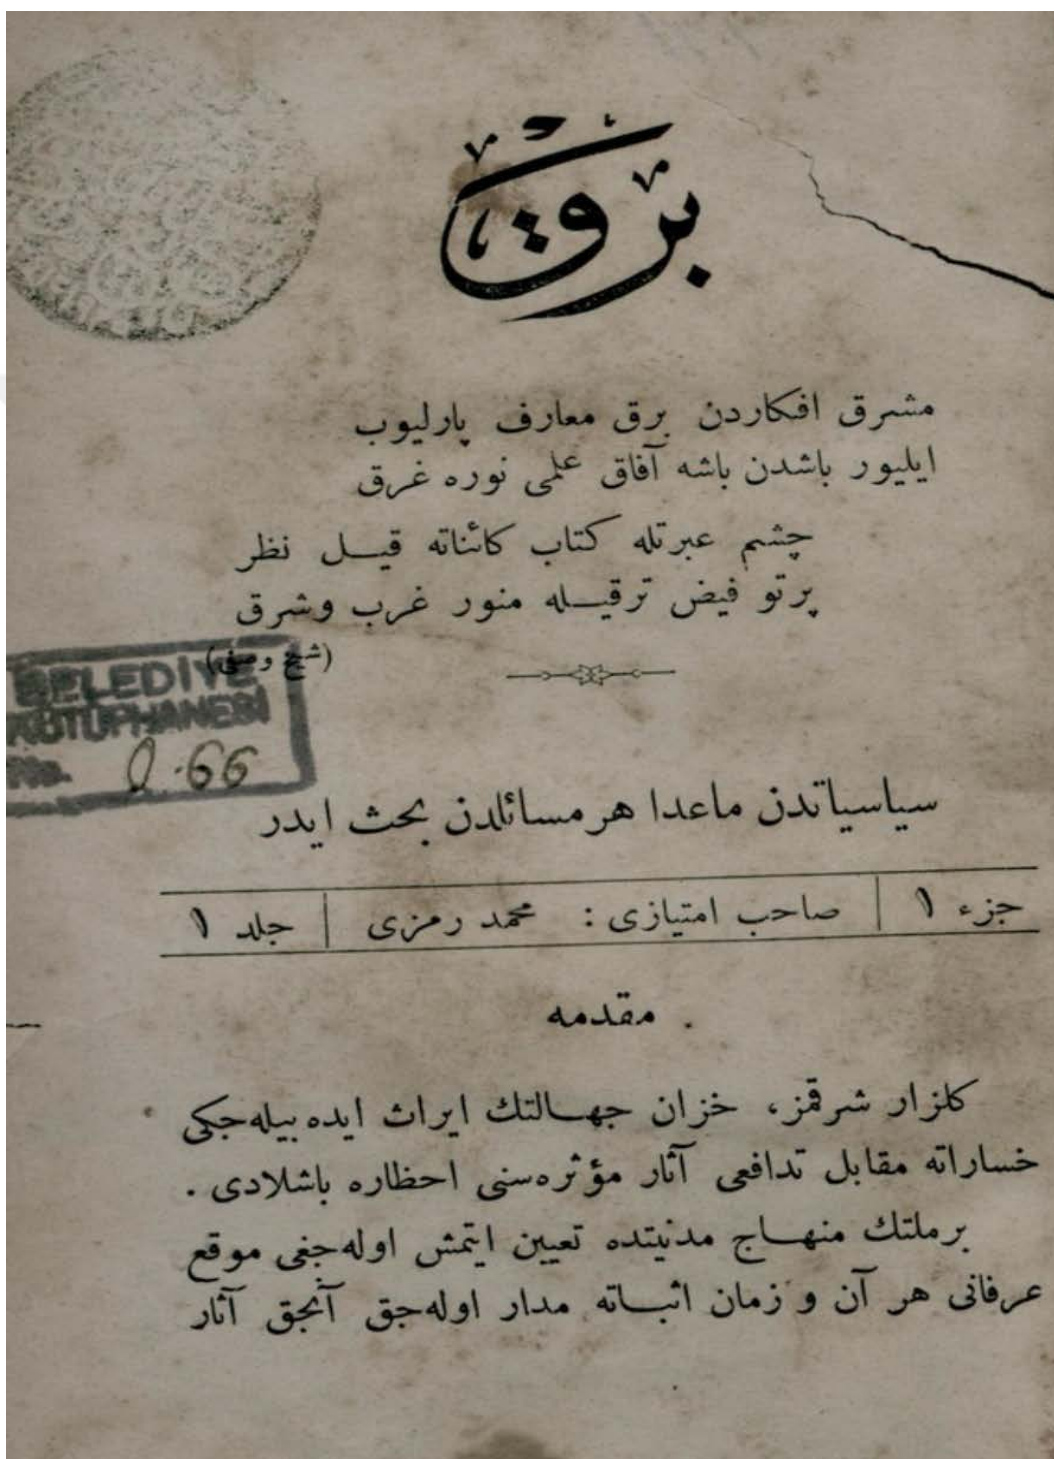 برق
مشرق افكاردن برق معارف پارليوب
ايليور باشدن باشه آفاق علمى نوره غرق
چشم عبرتله كتاب كائناته قيـل نظر
پرتو فيض ترقيـله منور غرب وشرق
(شيخ وصفى)
BELEDİYE
KÜTÜPHANESİ
No. O.66
سياسياتدن ماعدا هر مسائلدن بحث ايدر
جزء ١ | صاحب امتيازى : محمد رمزى | جلد ١
مقدمه
كلزار شرقمز، خزان جهـالتك ايراث ايده بيله جكى
خساراته مقابل تدافعى آثار مؤثره سنى احظاره باشلادى .
برملتك منهـاج مدنيتده تعيين ايتمش اوله جغى موقع
عرفانى هر آن و زمان اثبـاته مدار اوله جق آنجق آثار